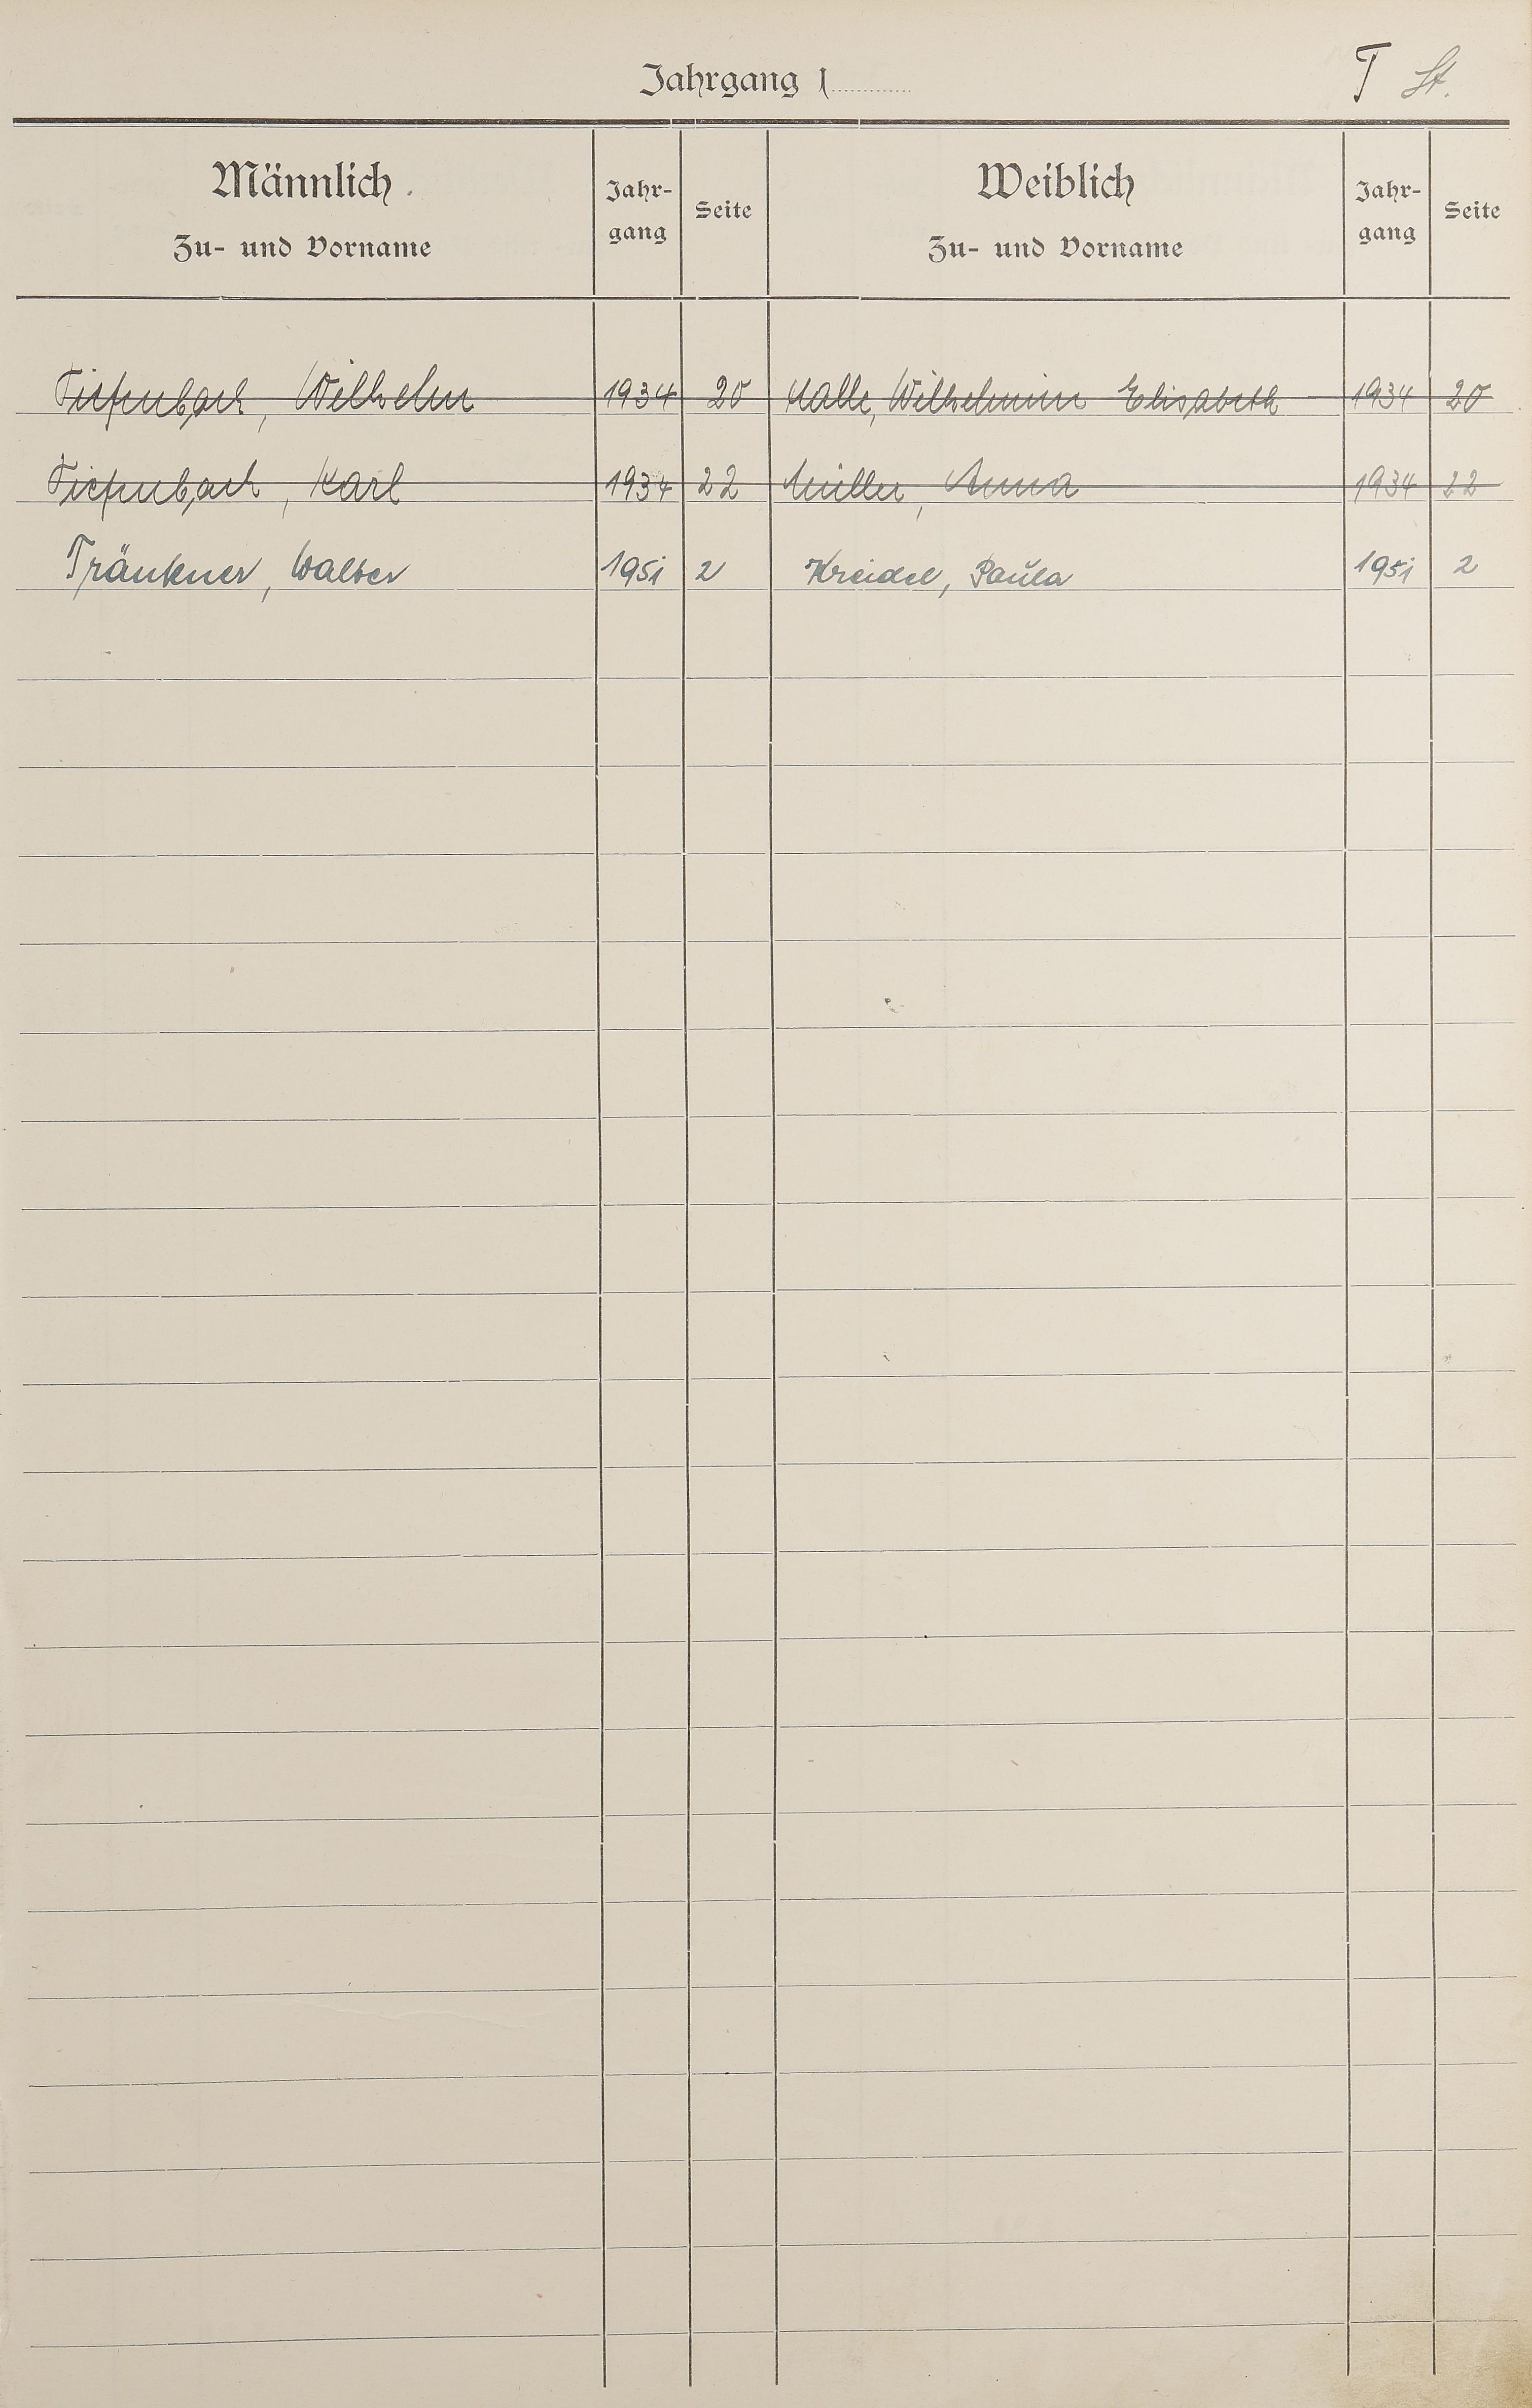 Jahrgang 1
T St.
Männlich Jahr- Seite Weiblich Jahr- Seite
Zu- und Vorname gang Zu- und Vorname gang
Tiefenbach, Wilhelm 1934 20 Kalle, Wilhelmine Elisabeth 1934 20
Tiefenbach, Karl 1934 22 Müller, Anna 1934 22
Tränkner, Walter 1951 2 Kreidel, Paula 1951 2